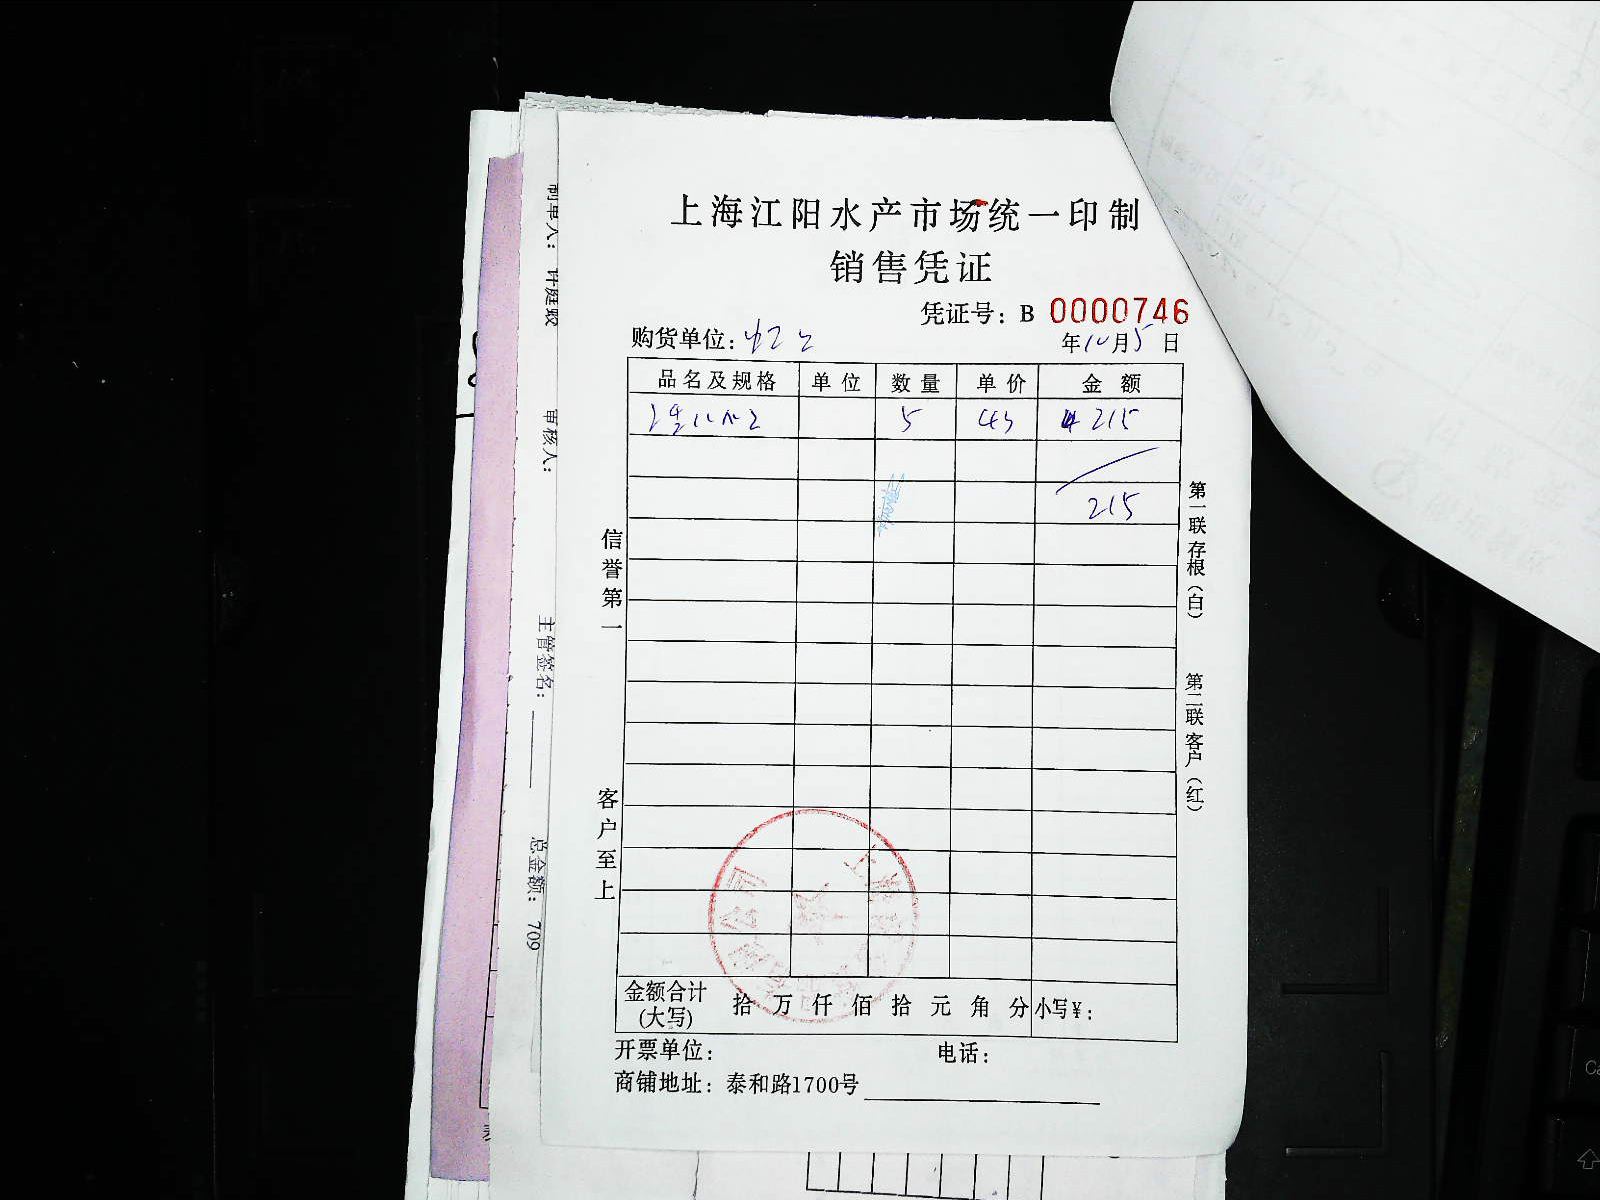 上海江阳水产市场统一印制
销售凭证
凭证号：B 0000746
购货单位：
年10月5日
品名及规格 单位 数量 单价 金额
5 43 215
215
信誉第一
客户至上
第一联存根（白）
第二联客户（红）
金额合计(大写) 拾万仟佰拾元角分 小写¥：
开票单位： 电话：
商铺地址：泰和路1700号
制单人：
审核人：
主管签名：
总金额：709